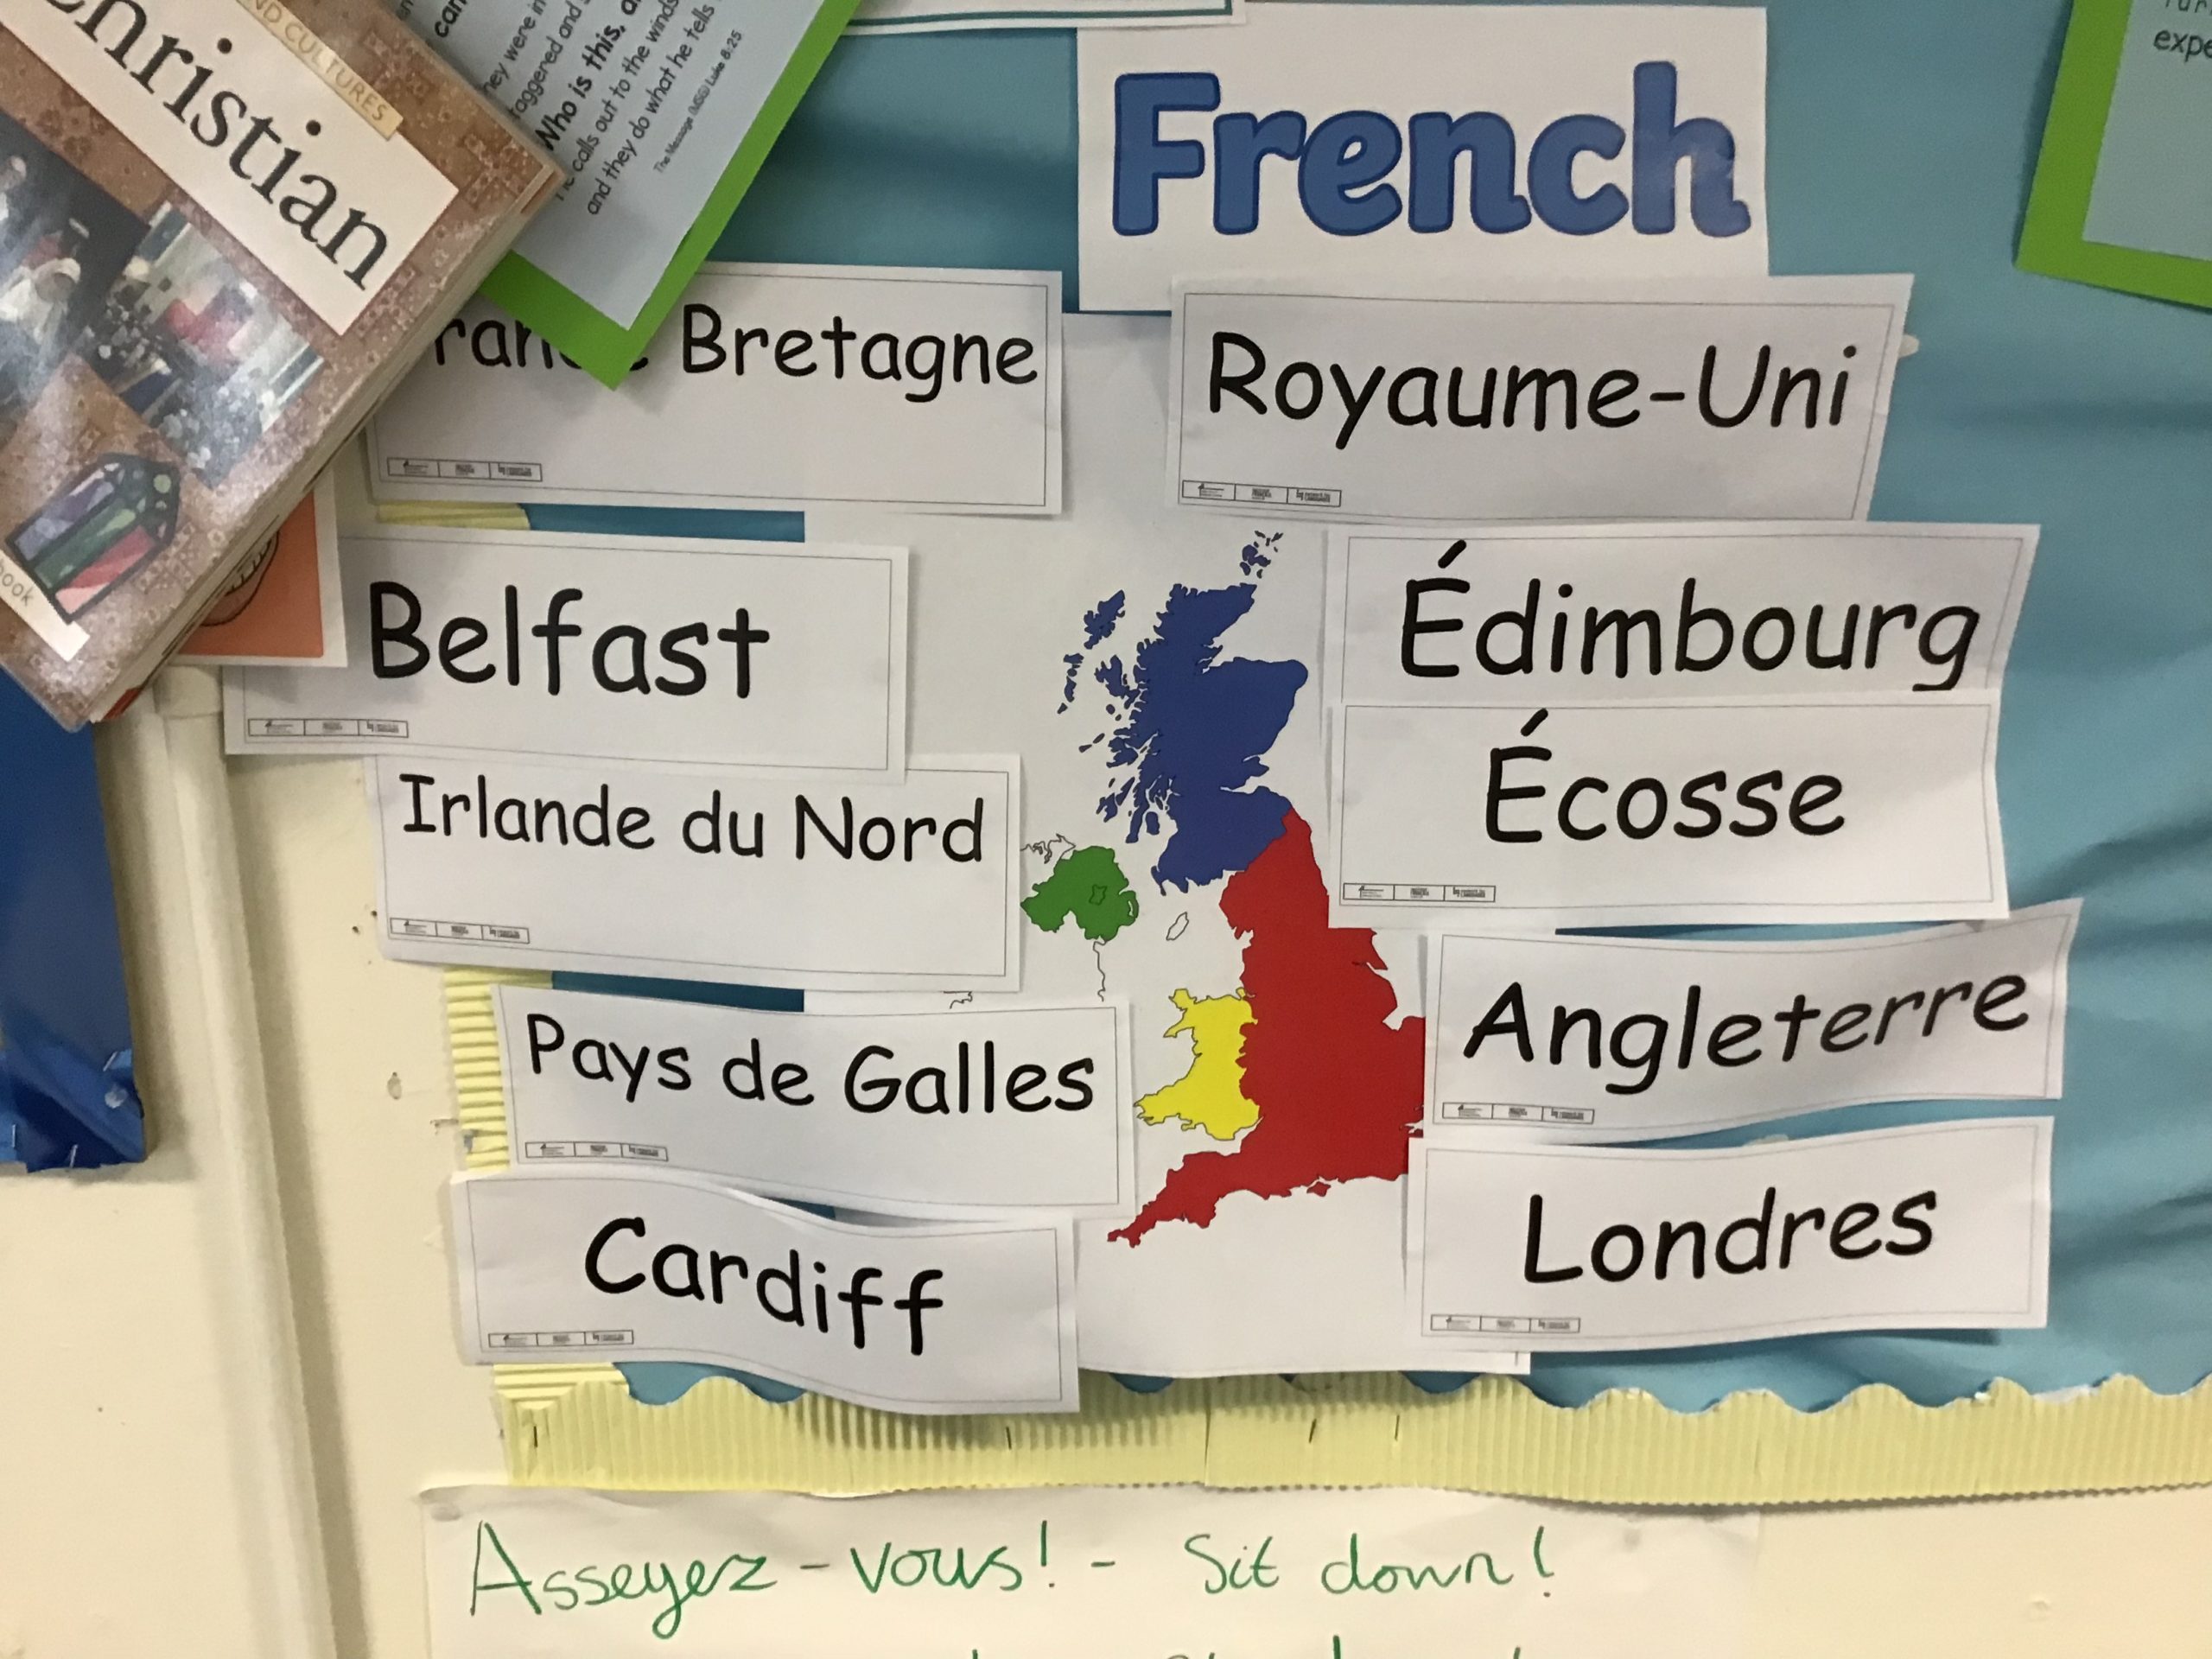 Christian
AND CULTURES
book
can
they were in
taggered and
Who is this.
calls out to the winds
and they do what he tells
The Message (MSG) Luke 8:25
expe
French
Bretagne
Royaume-Uni
Belfast
Édimbourg
Écosse
Irlande du Nord
Angleterre
Pays de Galles
Londres
Cardiff
Asseyez-vous! - Sit down!